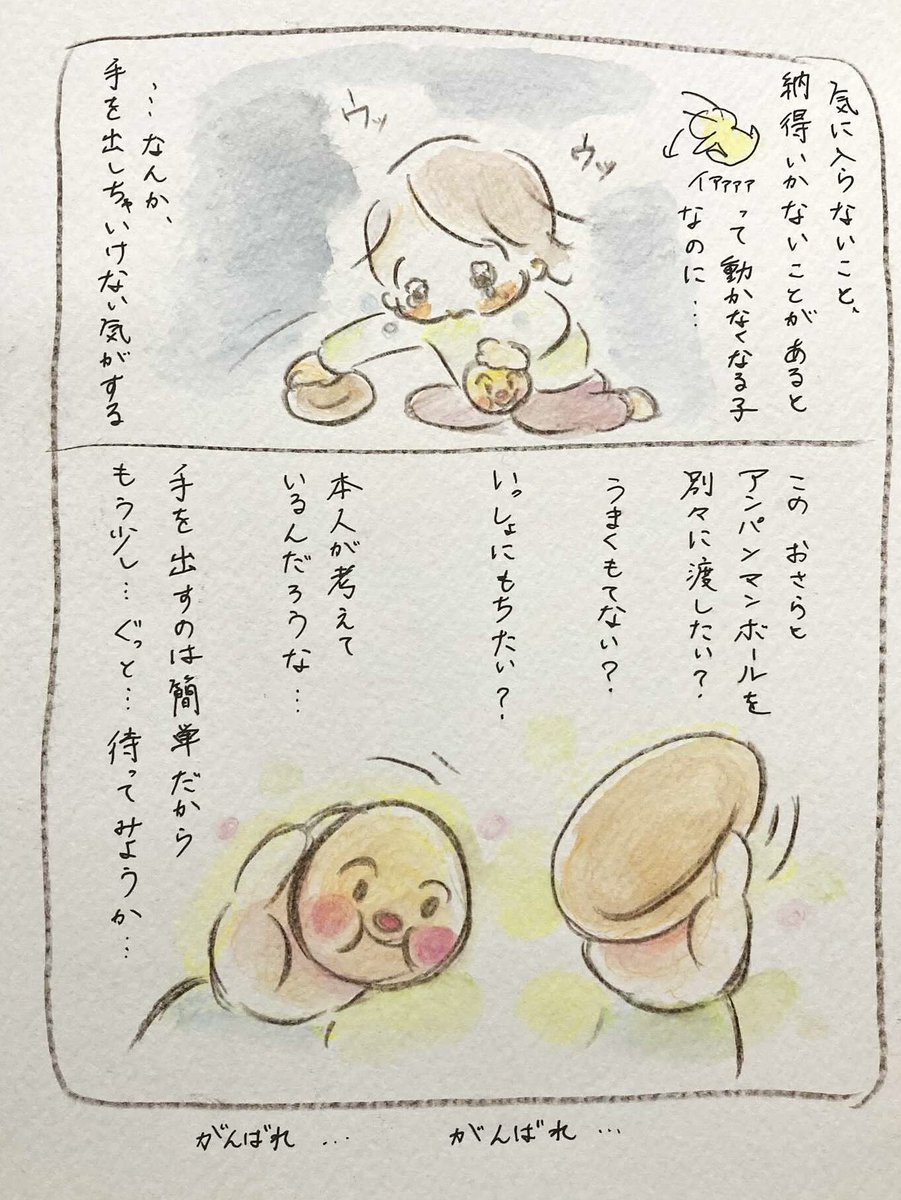 気に入らないこと、
納得いかないことがあると
イアァァァ
って動かなくなる子
なのに…
ウッ
ウッ
…なんか、
手を出しちゃいけない気がする
この おさらと
アンパンマンボールを
別々に渡したい?
うまくもてない?
いっしょにもちたい?
本人が考えて
いるんだろうな…
手を出すのは簡単だから
もう少し…ぐっと…待ってみようか…
がんばれ …
がんばれ …